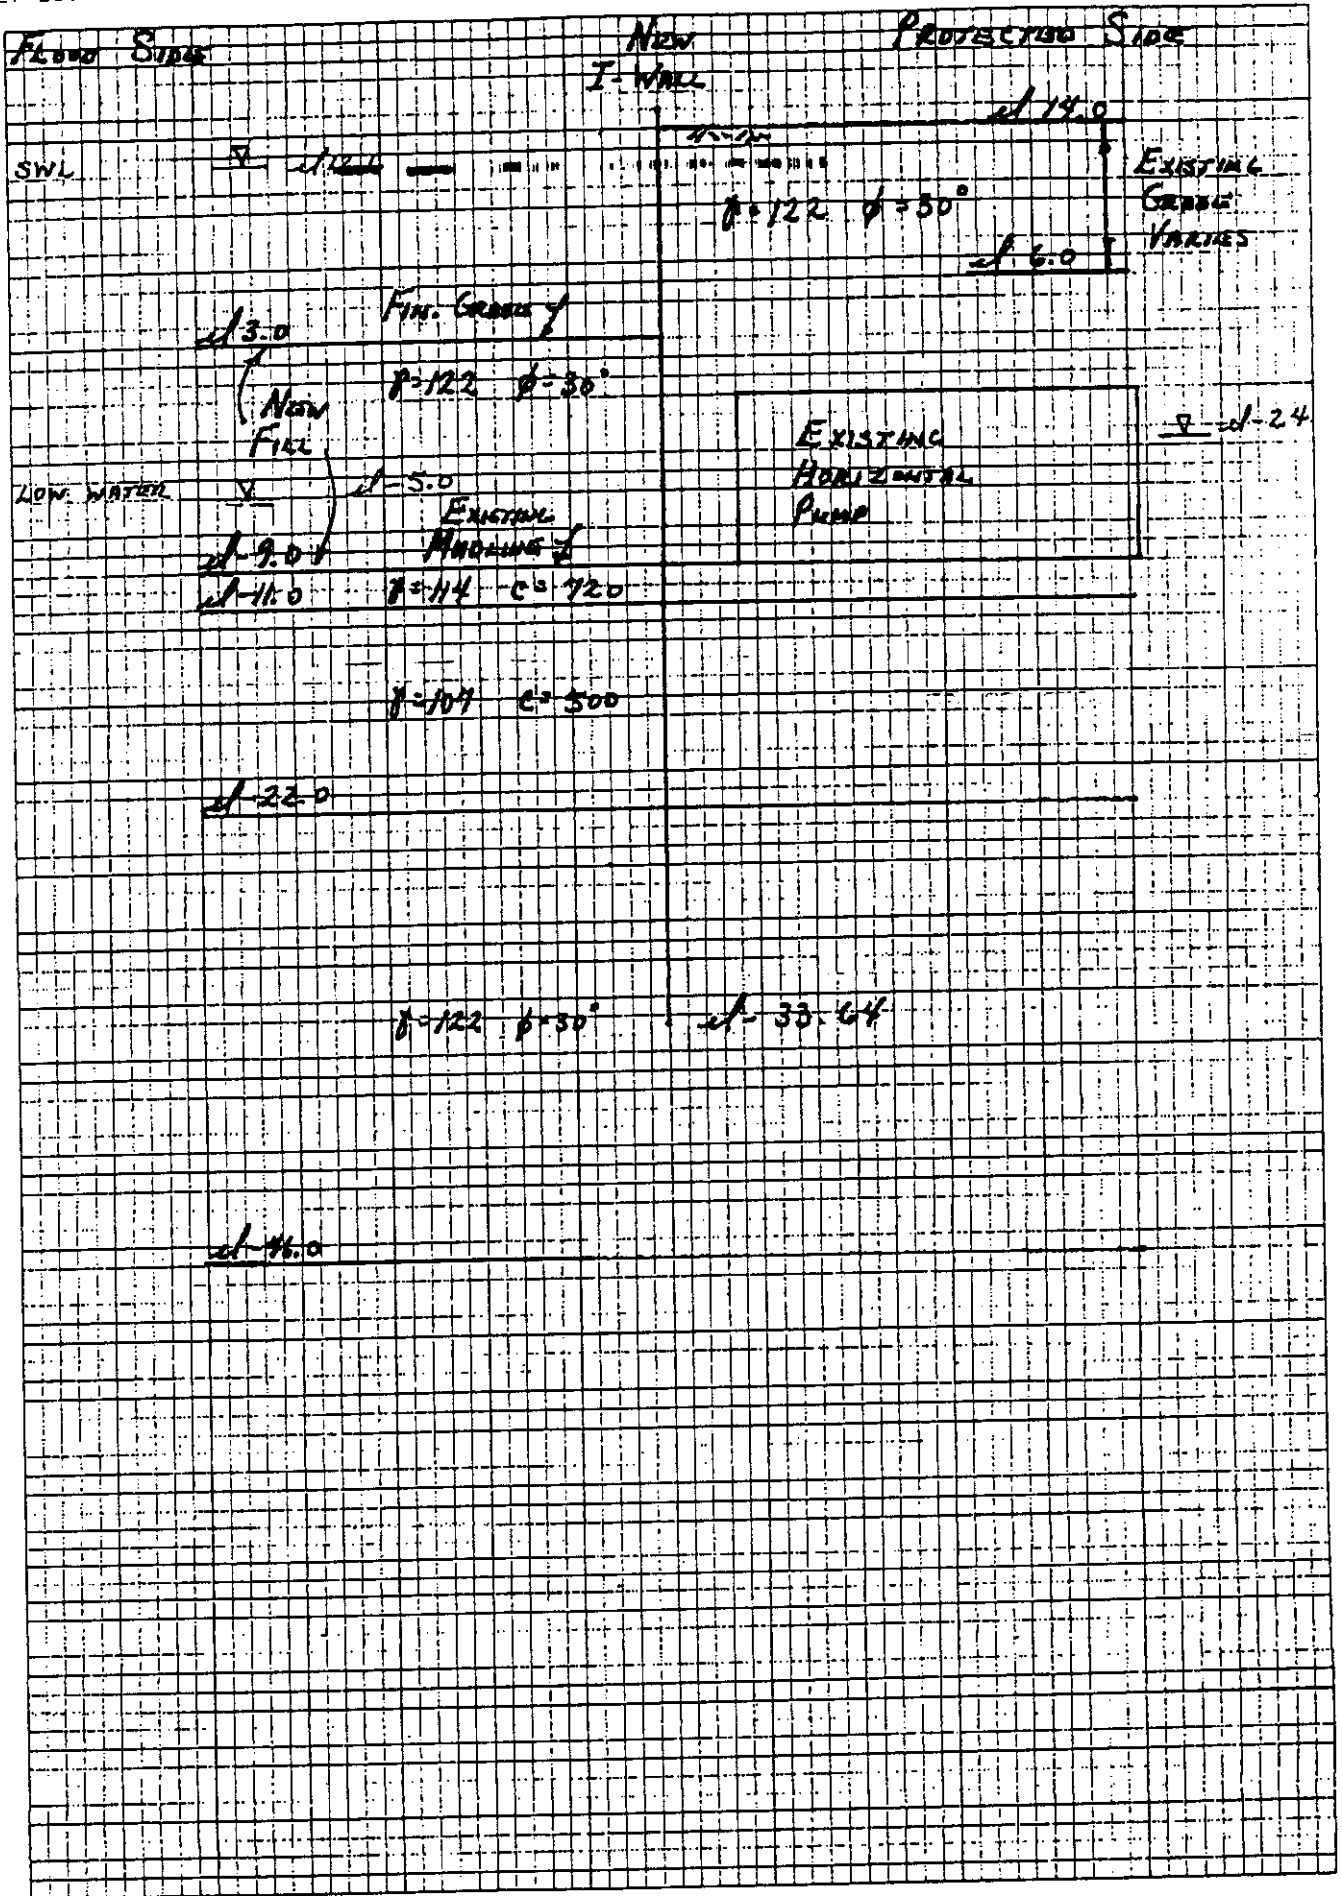 FLOOD SIDE
NEW
I-WALL
PROTECTED SIDE
el 14.0
SWL
EXISTING
GRADE
VARIES
γ=122 φ=30°
el 6.0
FIN. GRADE
el 3.0
γ=122 φ=30°
NEW
FILL
EXISTING
HORIZONTAL
PUMP
el-2.4
LOW WATER
el-5.0
EXISTING
MUDLINE
el-9.0
el-11.0
γ=114 c=720
γ=107 c=500
el-22.0
γ=122 φ=30°
el-33.64